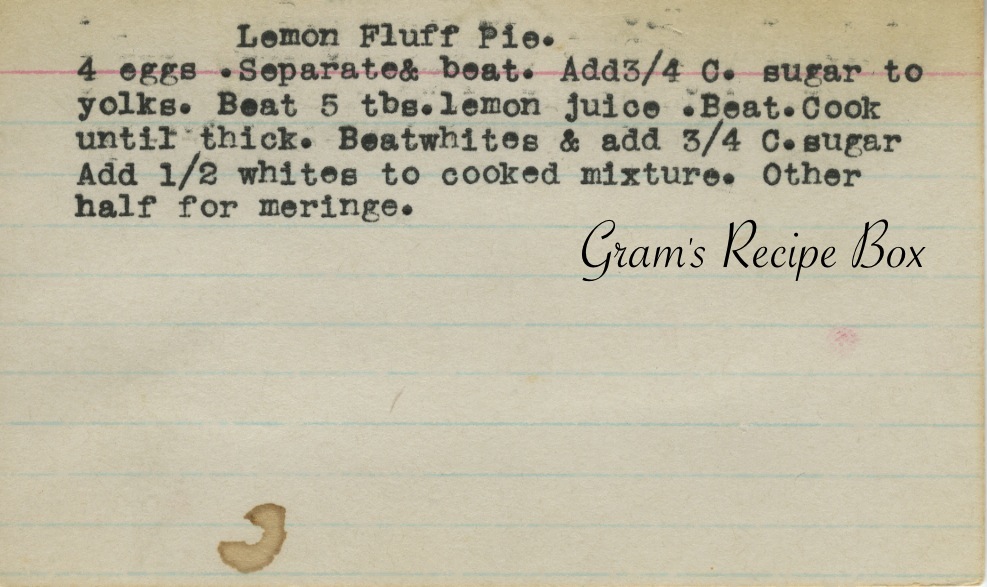 Lemon Fluff Pie.
4 eggs .Separate& beat. Add3/4 C. sugar to
yolks. Beat 5 tbs.lemon juice .Beat.Cook
until thick. Beatwhites & add 3/4 C.sugar
Add 1/2 whites to cooked mixture. Other
half for meringe.
Gram's Recipe Box